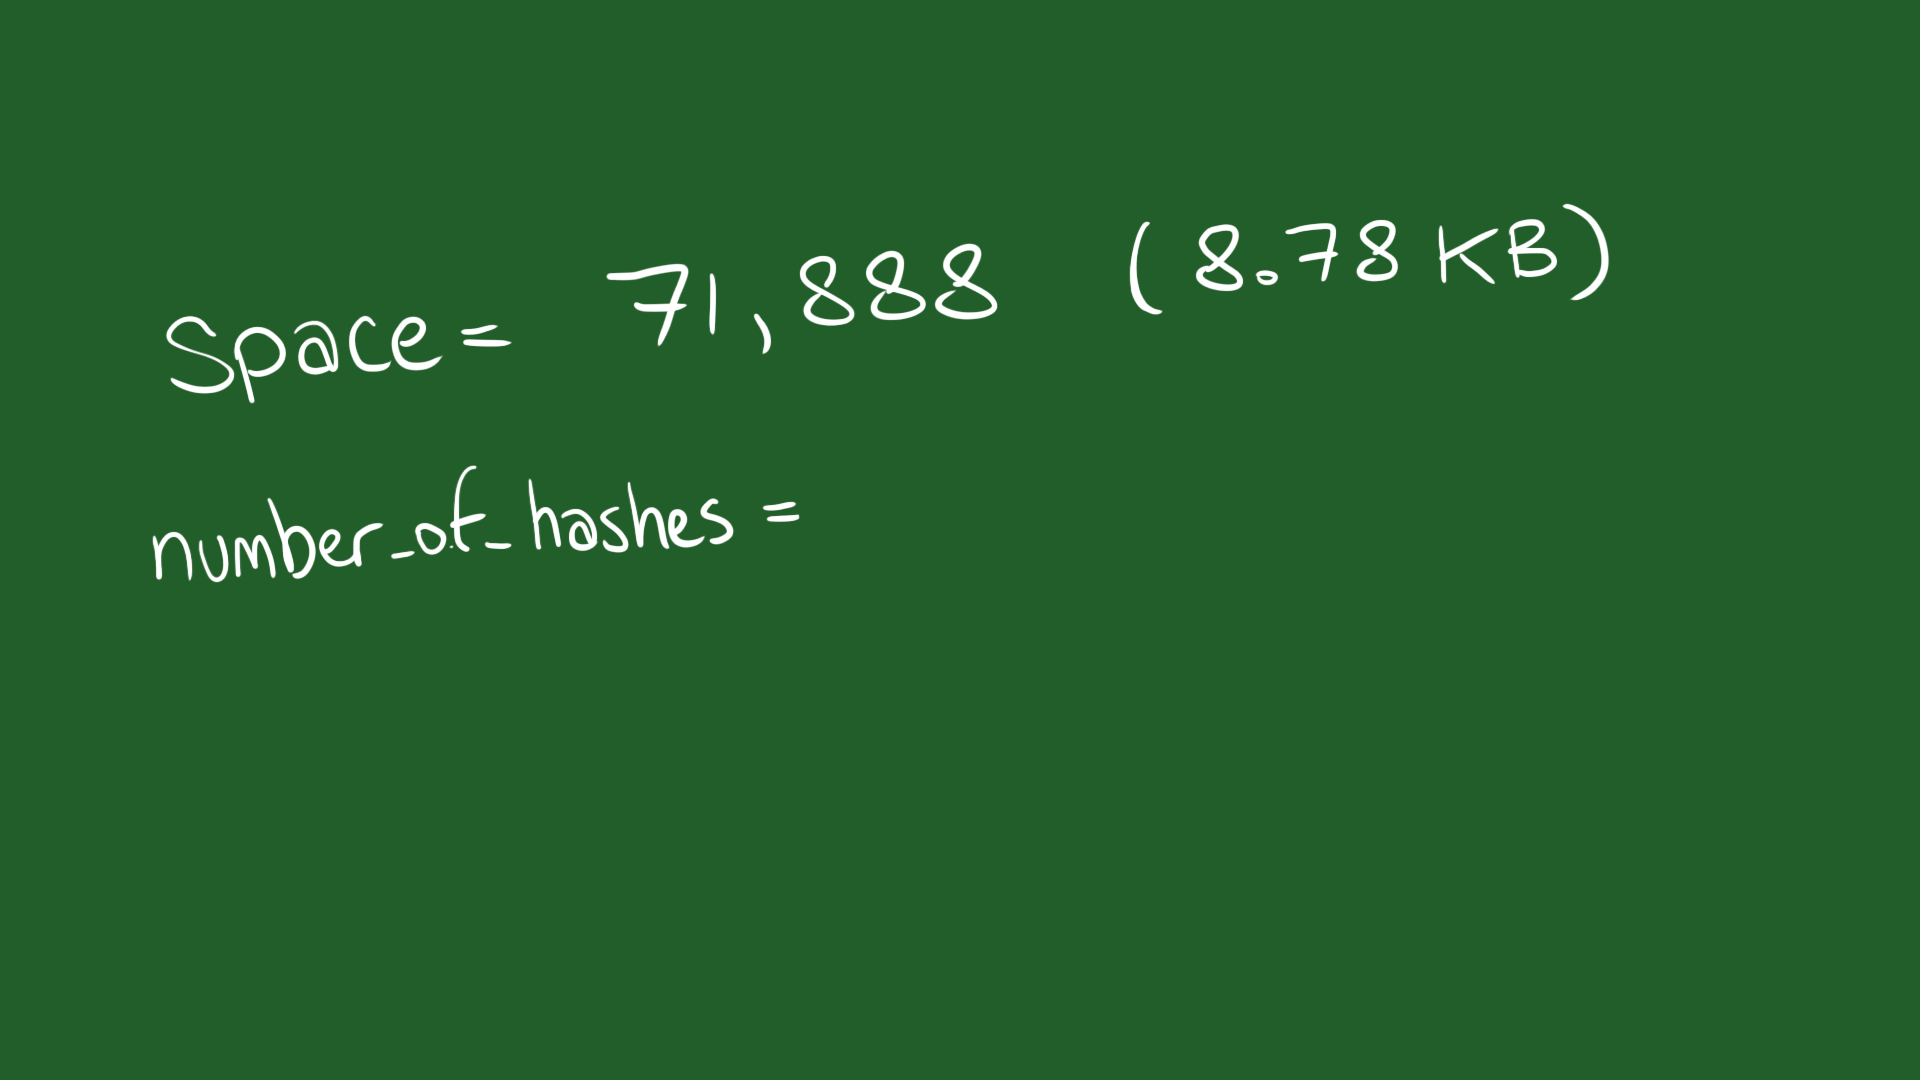 Space = 71,888 (8.78 KB)
number_of_hashes =